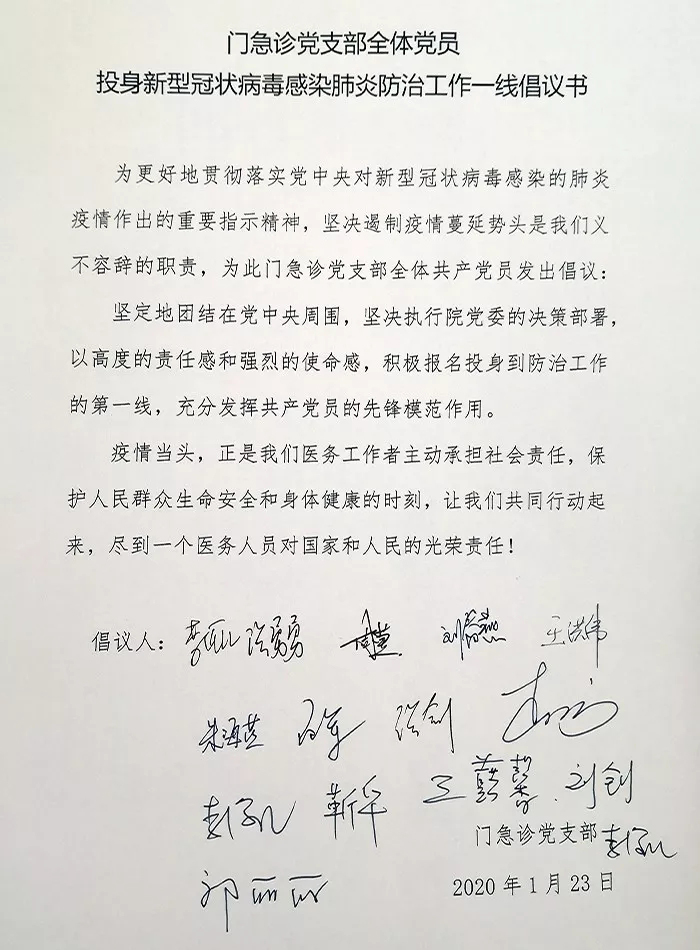 门急诊党支部全体党员
投身新型冠状病毒感染肺炎防治工作一线倡议书
为更好地贯彻落实党中央对新型冠状病毒感染的肺炎
疫情作出的重要指示精神，坚决遏制疫情蔓延势头是我们义
不容辞的职责，为此门急诊党支部全体共产党员发出倡议：
坚定地团结在党中央周围，坚决执行院党委的决策部署，
以高度的责任感和强烈的使命感，积极报名投身到防治工作
的第一线，充分发挥共产党员的先锋模范作用。
疫情当头，正是我们医务工作者主动承担社会责任，保
护人民群众生命安全和身体健康的时刻，让我们共同行动起
来，尽到一个医务人员对国家和人民的光荣责任！
倡议人： 王洪伟
朱海英 张剑
靳华 刘剑
门急诊党支部
邓丽丽
2020年1月23日